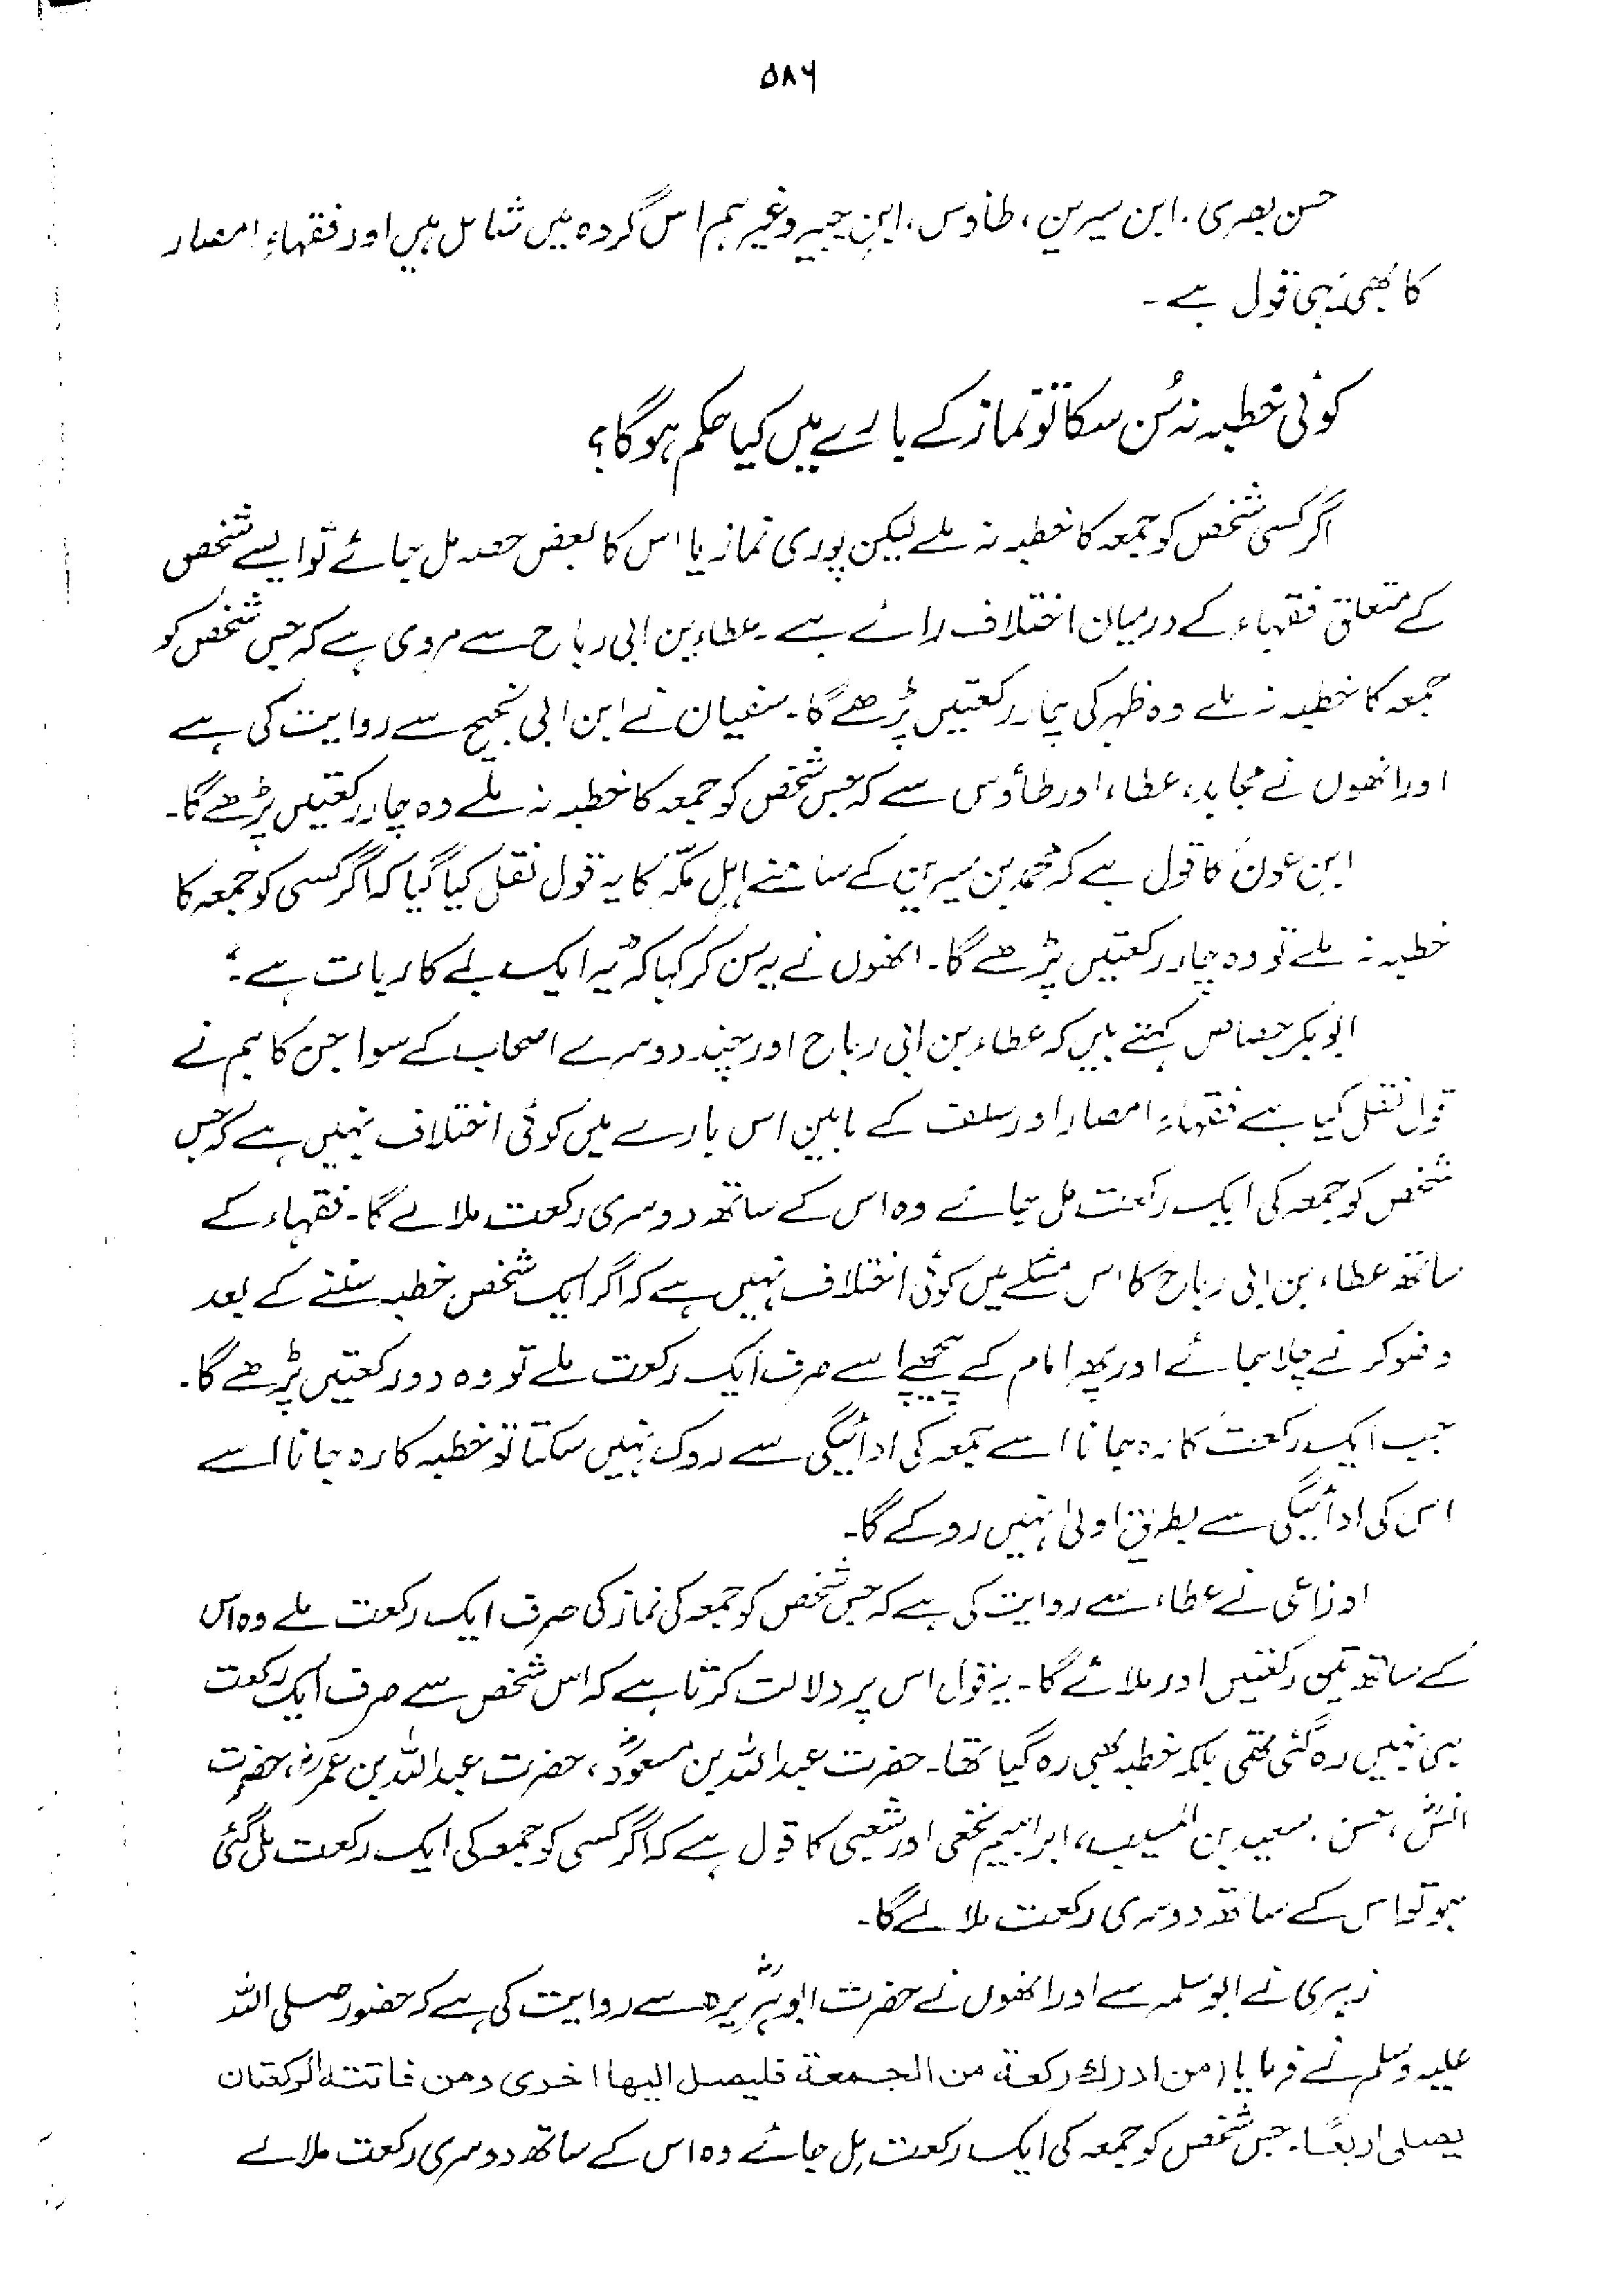 ۵۸۶
حسن بصری، ابن سیرین، طاؤس، ابن جبیر وغیرہم اس گروہ میں شامل ہیں اور فقہاءِ امصار
کا بھی یہی قول ہے۔
کوئی خطبہ نہ سُن سکا تو نماز کے بارے میں کیا حکم ہوگا؟
اگر کسی شخص کو جمعہ کا خطبہ نہ ملے لیکن پوری نماز یا اس کا بعض حصہ مل جائے تو ایسے شخص
کے متعلق فقہاء کے درمیان اختلاف رائے ہے۔ عطاء بن ابی رباح سے مروی ہے کہ جس شخص کو
جمعہ کا خطبہ نہ ملے وہ ظہر کی چار رکعتیں پڑھے گا۔ سفیان نے ابن ابی نجیح سے روایت کی ہے
اور انھوں نے مجاہد، عطاء اور طاؤس سے کہ جس شخص کو جمعہ کا خطبہ نہ ملے وہ چار رکعتیں پڑھے گا۔
ابن عون کا قول ہے کہ محمد بن سیرین کے سامنے اہل مکّہ کا یہ قول نقل کیا گیا کہ اگر کسی کو جمعہ کا
خطبہ نہ ملے تو وہ چار رکعتیں پڑھے گا۔ انھوں نے یہ سن کر کہا کہ "یہ ایک بے کار بات ہے"۔
ابوبکر جصاص کہتے ہیں کہ عطاء بن ابی رباح اور چند دوسرے اصحاب کے سوا جن کا ہم نے
قول نقل کیا ہے فقہاء امصار اور سلف کے مابین اس بارے میں کوئی اختلاف نہیں ہے کہ جس
شخص کو جمعہ کی ایک رکعت مل جائے وہ اس کے ساتھ دوسری رکعت ملالے گا۔ فقہاء کے
ساتھ عطاء بن ابی رباح کا اس مسئلے میں کوئی اختلاف نہیں ہے کہ اگر ایک شخص خطبہ سننے کے بعد
وضو کرنے چلا جائے اور پھر امام کے پیچھے اسے صرف ایک رکعت ملے تو وہ دو رکعتیں پڑھے گا۔
جب ایک رکعت کا رہ جانا اسے جمعہ کی ادائیگی سے روک نہیں سکتا تو خطبہ کا رہ جانا اسے
اس کی ادائیگی سے بطریق اولیٰ نہیں روکے گا۔
اوزاعی نے عطاء سے روایت کی ہے کہ جس شخص کو جمعہ کی نماز کی صرف ایک رکعت ملے وہ اس
کے ساتھ تین رکعتیں اور ملائے گا۔ یہ قول اس پر دلالت کرتا ہے کہ اس شخص سے صرف ایک رکعت
ہی نہیں رہ گئی تھی بلکہ خطبہ بھی رہ گیا تھا۔ حضرت عبداللہ بن مسعودؓ، حضرت عبداللہ بن عمرؓ، حضرت
انسؓ، حسن، سعید بن المسیب، ابراہیم نخعی اور شعبی کا قول ہے کہ اگر کسی کو جمعہ کی ایک رکعت مل گئی
ہو تو اس کے ساتھ دوسری رکعت ملالے گا۔
زہری نے ابوسلمہ سے اور انھوں نے حضرت ابوہریرہؓ سے روایت کی ہے کہ حضور صلی اللہ
علیہ وسلم نے فرمایا (من ادرك ركعة من الجمعة فليصل اليها اخرى ومن فاتته الركعتان
يصلى اربعًا۔ جس شخص کو جمعہ کی ایک رکعت مل جائے وہ اس کے ساتھ دوسری رکعت ملالے